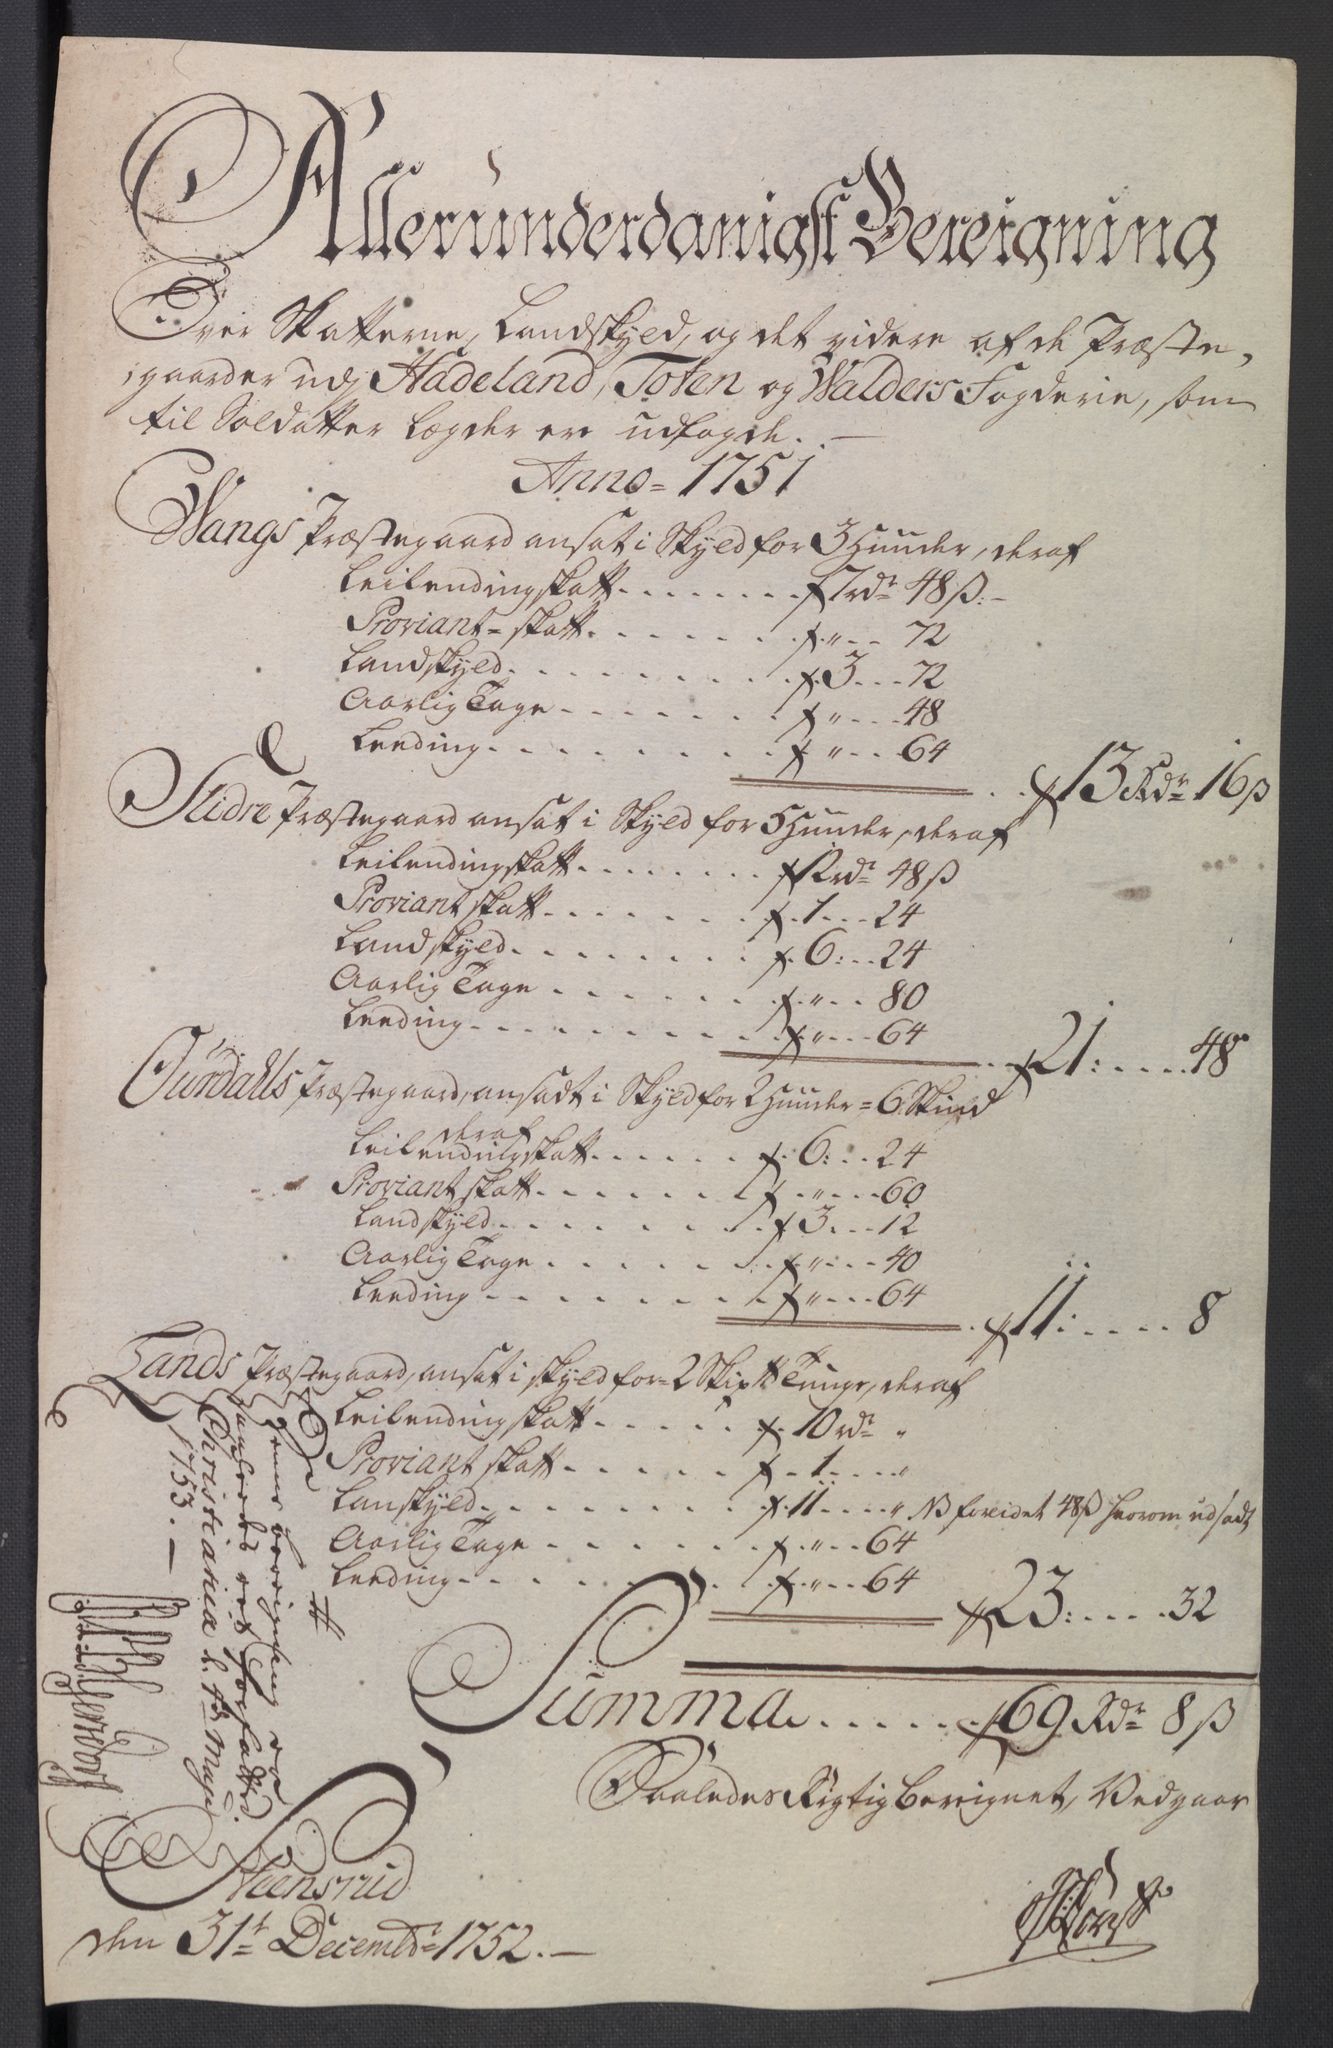 Allerunderdanigst Bereigning
Over Skatterne, Landskyld, og det videre af de Præste,
gaarder udj Hadeland, Toten og Walders Fogderie, som
til Soldatter Lægder ere udlagde. —
Anno = 1751
Wangs Præstegaard ansat i Skyld for 3 Huuder, deraf
Leilendingskatt . . . . . . . . 7 rdr 48 ß: –
Proviant = skatt . . . . . . " . . 72
Landskyld . . . . . . . . . 3 . . . 72
Aarlig Tage . . . . . . . " . . . 48
Leeding . . . . . . . . . " . . . 64
13 Rdr 16 ß
Slidre Præstegaard ansat i Skyld for 5 Huuder, deraf
Leilendingskatt . . . . . . . . 12 rdr 48 ß
Proviant skatt . . . . . . . 1 . . . 24
Landskyld . . . . . . . . 6 : . . 24
Aarlig Tage . . . . . . . " . . . 80
Leeding . . . . . . . . . " . . . 64
21 : . . . . . 48
Ourdahls Præstegaard, ansadt i Skyld for 2 Huuder = 6 Skind
deraf
Leilendingskatt . . . . . . 6 : . . . 24
Proviant skatt . . . . . . . " . . . 60
Landskyld . . . . . . . . 3 . . . 12
Aarlig Tage . . . . . . . " . . . 40
Leeding . . . . . . . . . " . . . 64
11 : . . . . . 8
Lands Præstegaard, ansat i skyld for = 2 Skip tt Tunge, deraf
Leilendingskatt . . . . . . 10 rdr "
Proviant skatt . . . . . . 1 . . . . "
Lanskyld . . . . . . . . 11 . . . . " NB forvidet 48 ß hvorom udsadt
Aarlig Tage . . . . . . . " . . 64
Leeding . . . . . . . . . " . . 64
23 : . . . . . 32
Summa . . . . . . 69 Rdr 8 ß
Saaledes Rigtig Berignet, Vedgaar
Steensrud
den 31t Decembr 1752. —
Denne bereigning er
Christiania d. 1ste Maji
1753. —